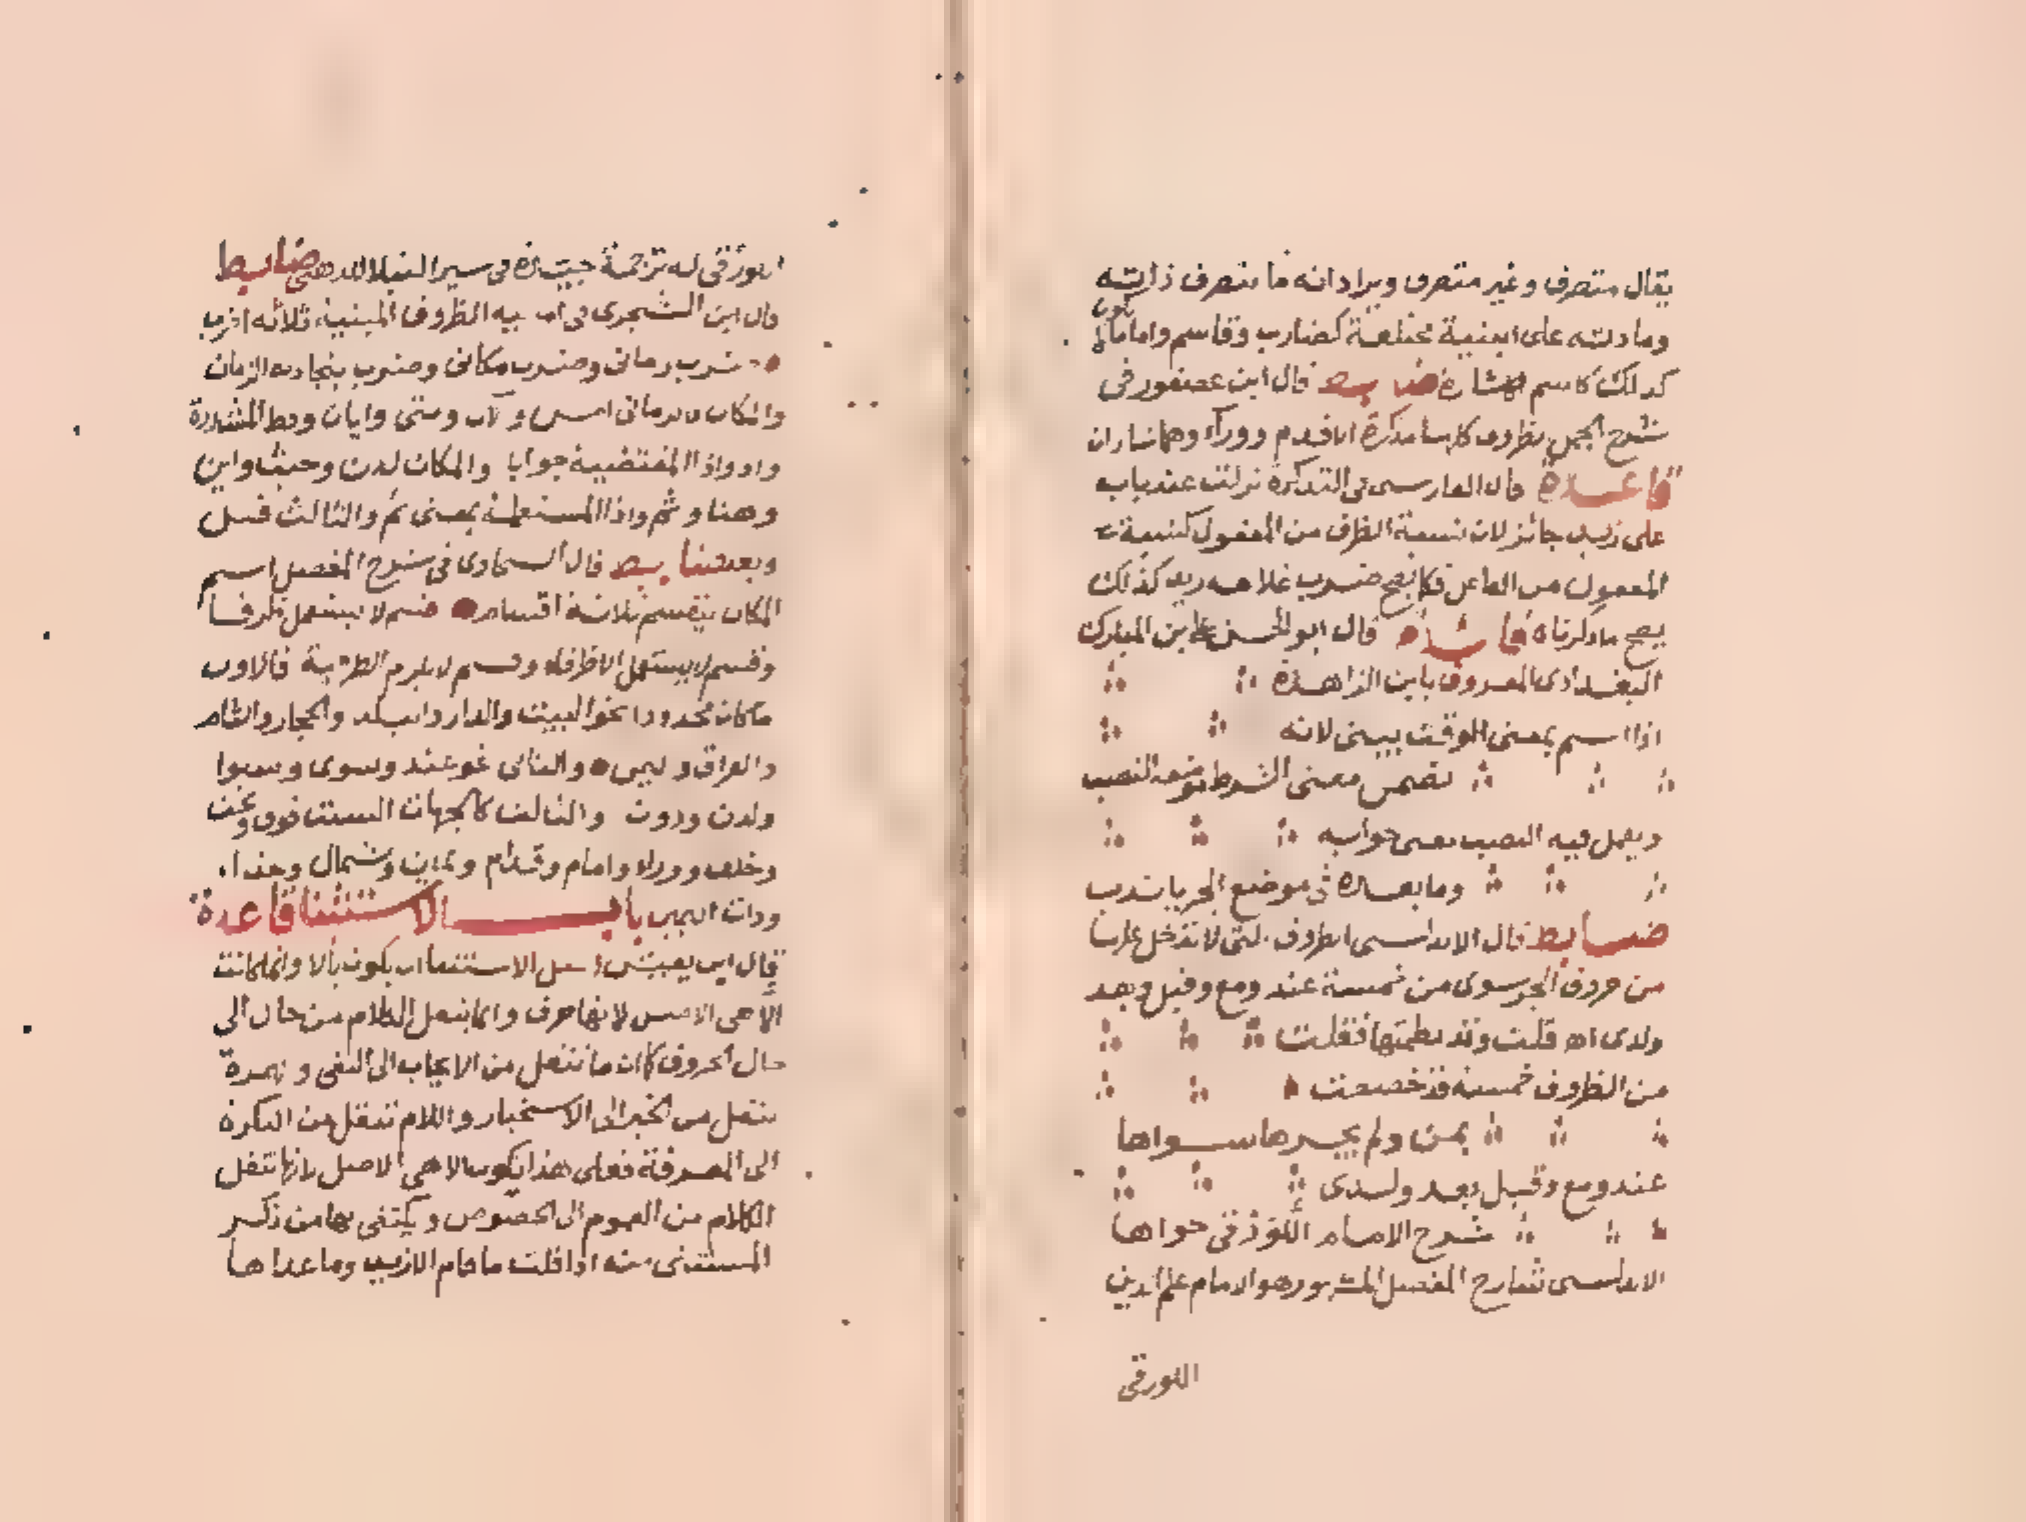 يقال متصرف وغير متصرف ويراد انه ما تتصرف ذاته
ومادته على ابنية مختلفة كضارب وقاسم واما ما لا يكون
كذلك كاسم الاشارة ضابط قال ابن عصفور في
شرح الجمل الظروف كلها مذكرة الا قدام ووراء وهما شاذان
قاعدة قال الفارسي في التذكرة نزلت عند باب
على زيد جائز لان نسبة الظرف من المفعول كنسبة
المفعول من الفاعل فكما يصح ضرب غلامه زيد كذلك
يصح ما ذكرناه قال ابو الحسن علي بن المبارك
البغدادي المعروف بابن الزاهدة
اذا اسم بمعنى الوقت يبنى لانه
تضمن معنى الشرط موضعه النصب
ويعمل فيه النصب معنى جوابه
وما بعده في موضع الجر يا ندب
ضابط قال الاندلسي الظروف التي لا تدخل عليها
من حروف الجر سوى من خمسة عند ومع وقبل وبعد
ولدى اه قلت وقد نظمتها فقلت
من الظروف خمسة قد خصصت
بمن ولم يجرها سواها
عند ومع وقبل بعد ولدى
شرح الامام اللورقي حواها
الاندلسي شارح المفصل المشهور هو الامام علم الدين
اللورقي
اللورقي له ترجمة جيدة في سير النبلا للذهبي ضابط
قال ابن الشجري في اماليه الظروف المبنية ثلاثة اضرب
ضرب زماني وضرب مكاني وضرب يتجاذبه الزمان
والمكان فالزماني امس والآن ومتى وايان وقط المشددة
واذ واذا المقتضية جوابا والمكان لدن وحيث واين
وهنا وثم واذا المستعملة بمعنى ثم والثالث قبل
وبعد ضابط قال السخاوي في شرح المفصل اسم
المكان ينقسم ثلاثة اقسام قسم لا يستعمل ظرفا
وقسم لا يستعمل الا ظرفا وقسم لا يلزم الظرفية فالاول
ما كان محدودا نحو البيت والدار والبلد والحجاز والشام
والعراق واليمن والثاني نحو عند وسوى وسوا
ولدن ودون والثالث كالجهات الست فوق وتحت
وخلف ووراء وامام وقدام ويمين وشمال وحذاء
وذات اليمين باب الاستثنا قاعدة
قال ابن يعيش اصل الاستثناء ان يكون بالا وانما كانت
الا هي الاصل لانها حرف وانما ينقل الكلام من حال الى
حال الحروف كما ان ما تنقل من الايجاب الى النفي والهمزة
تنقل من الخبر الى الاستخبار واللام تنقل من النكرة
الى المعرفة فعلى هذا يكون الا هي الاصل لانها تنقل
الكلام من العموم الى الخصوص ويكتفى بها من ذكر
المستثنى منه اذا قلت ما قام الا زيد وما عداها